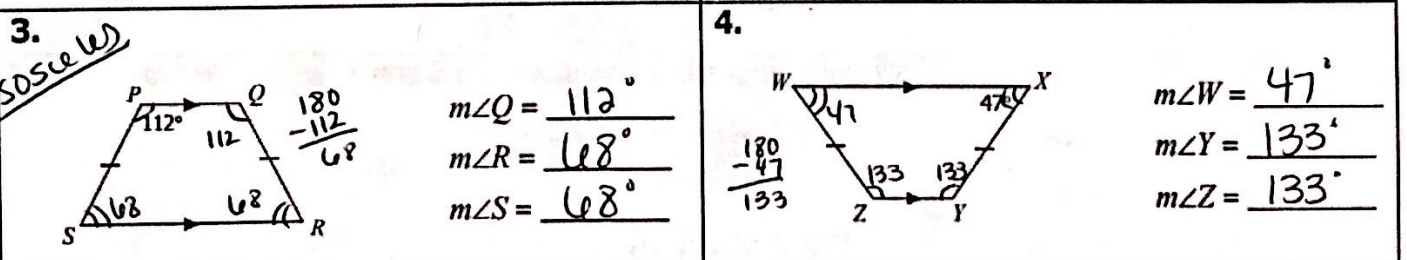 3.
sosceles
P
Q
112°
112
180
-112
68
68
68
S
R
m∠Q = 112°
m∠R = 68°
m∠S = 68°
4.
W
X
47
47°
180
-47
133
133
133
Z
Y
m∠W = 47°
m∠Y = 133°
m∠Z = 133°